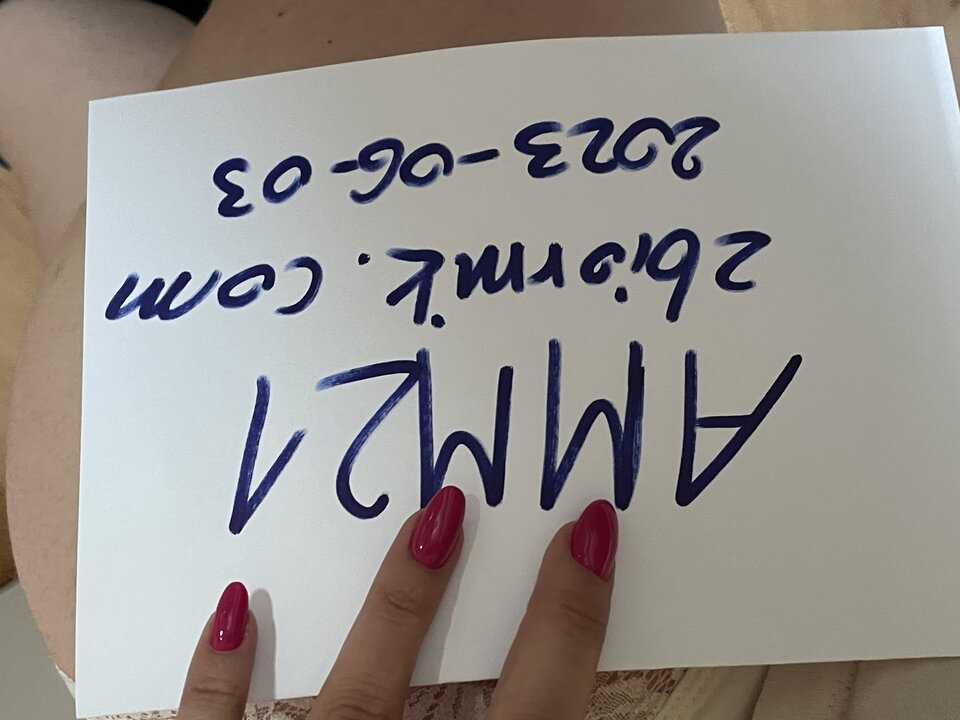 AMM21
zbiornik.com
2023-06-03